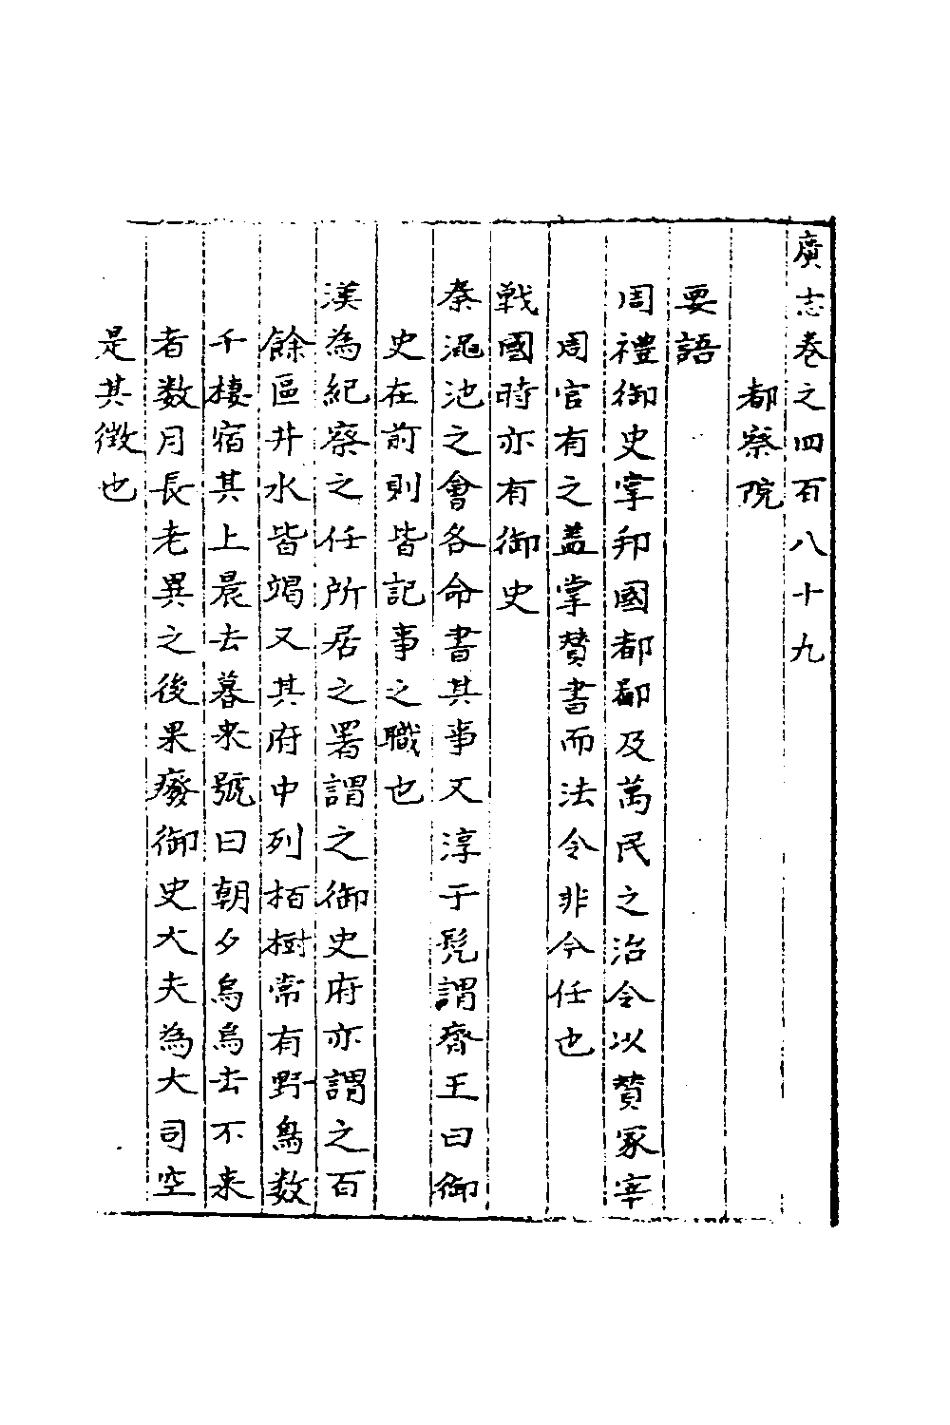 廣志卷之四百八十九
都察院
要語
周禮御史掌邦國都鄙及萬民之治令以賛冢宰
周官有之蓋掌賛書而法令非今任也
戰國時亦有御史
秦澠池之會各命書其事又淳于髡謂齊王曰御
史在前則皆記事之職也
漢為紀察之任所居之署謂之御史府亦謂之百
餘區井水皆竭又其府中列栢樹常有野鳥数
千棲宿其上晨去暮来號曰朝夕烏烏去不来
者数月長老異之後果廢御史大夫為大司空
是其徴也